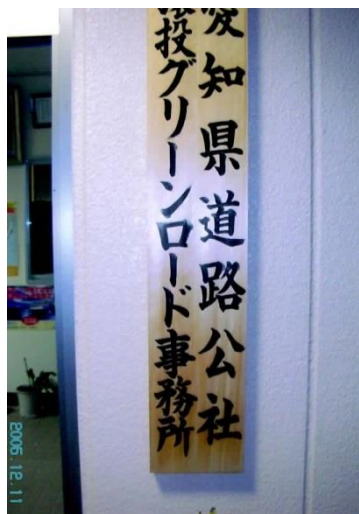 愛知県道路公社
猿投グリーンロード事務所
2006.12.11